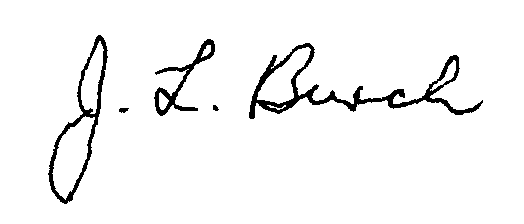 J. L. Busch